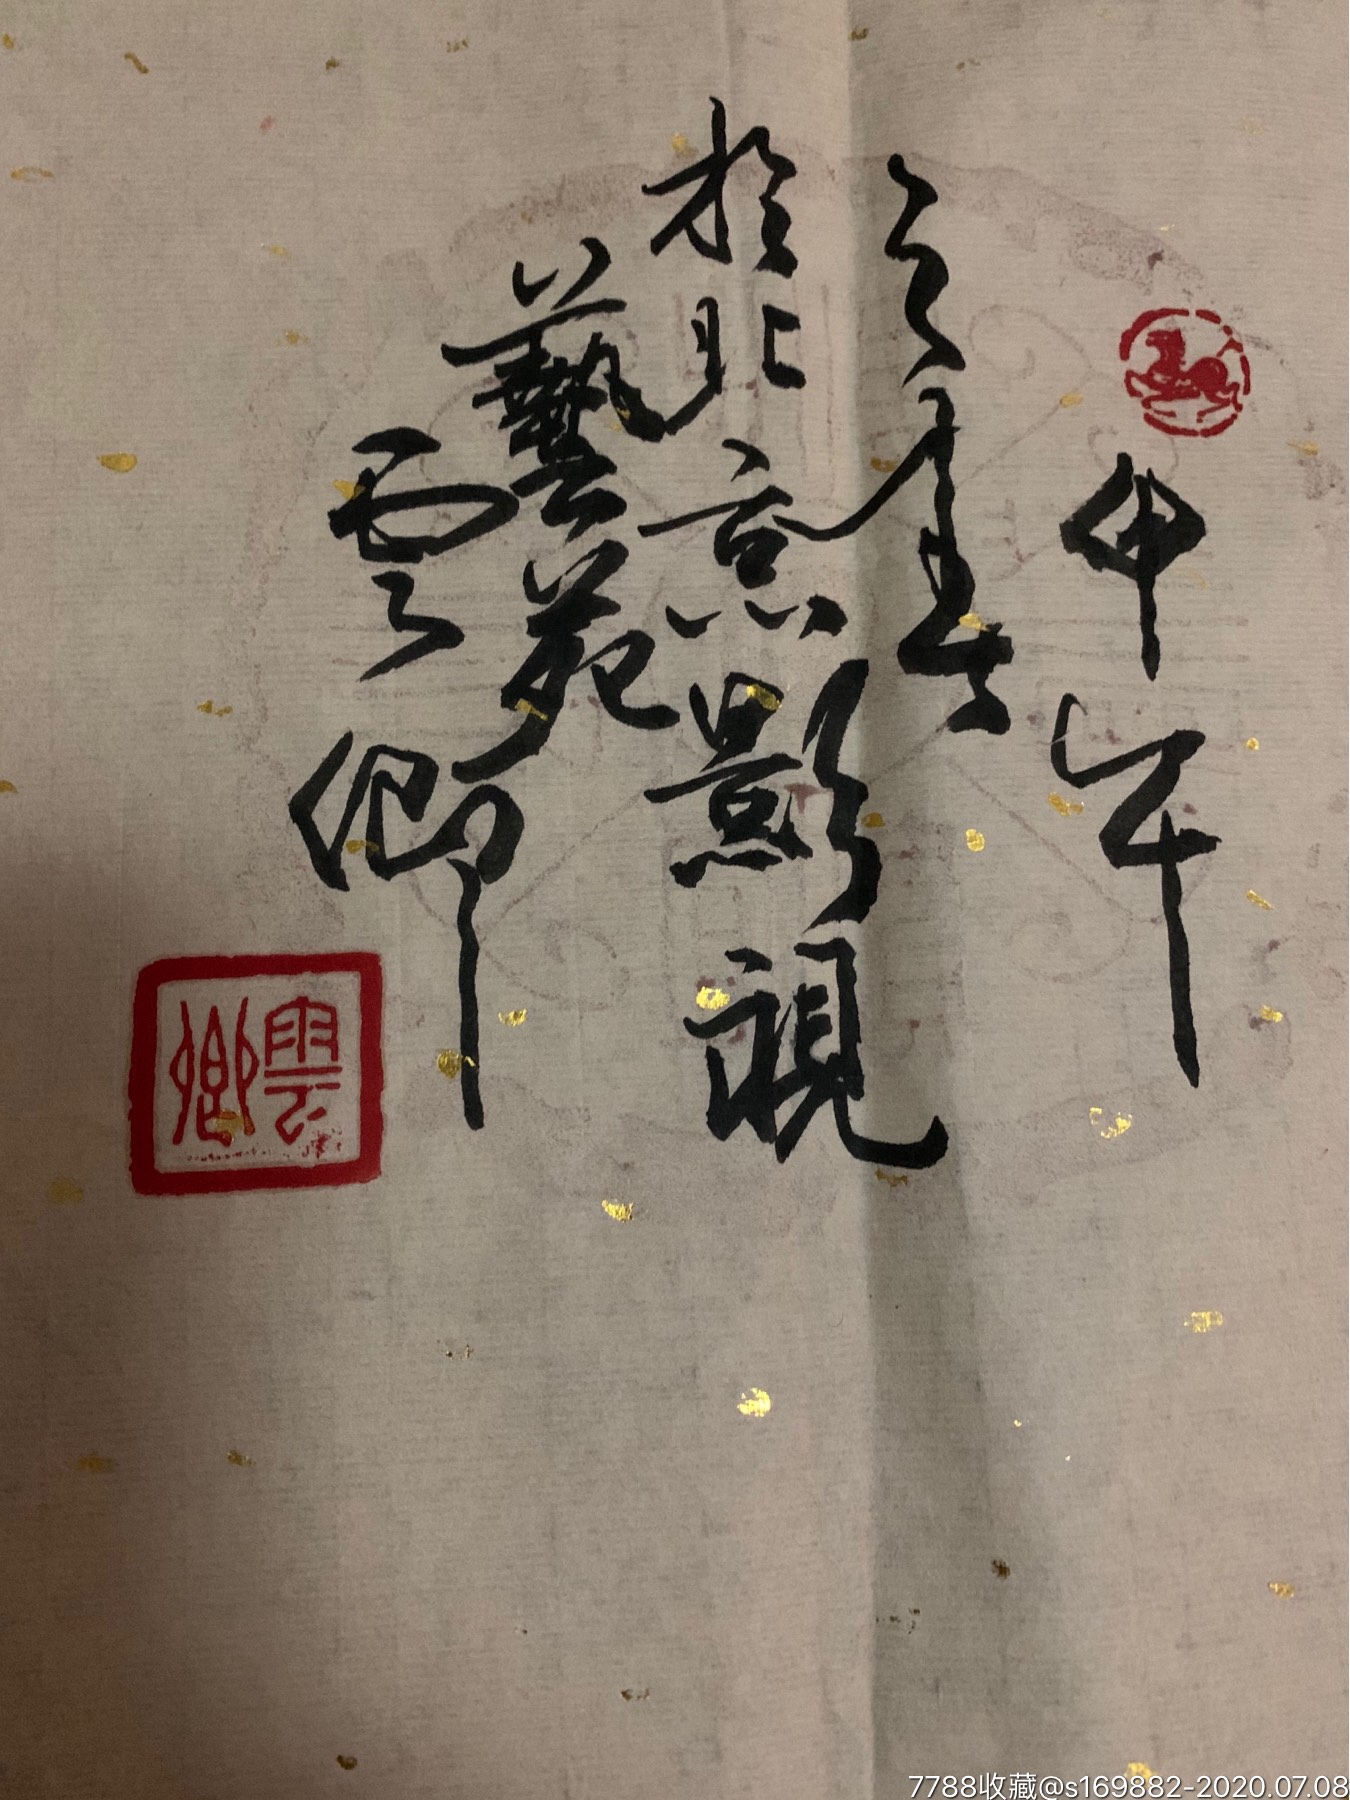 甲午
之
於北京影視
藝苑
雲卿
雲卿
7788收藏@s169882-2020.07.08